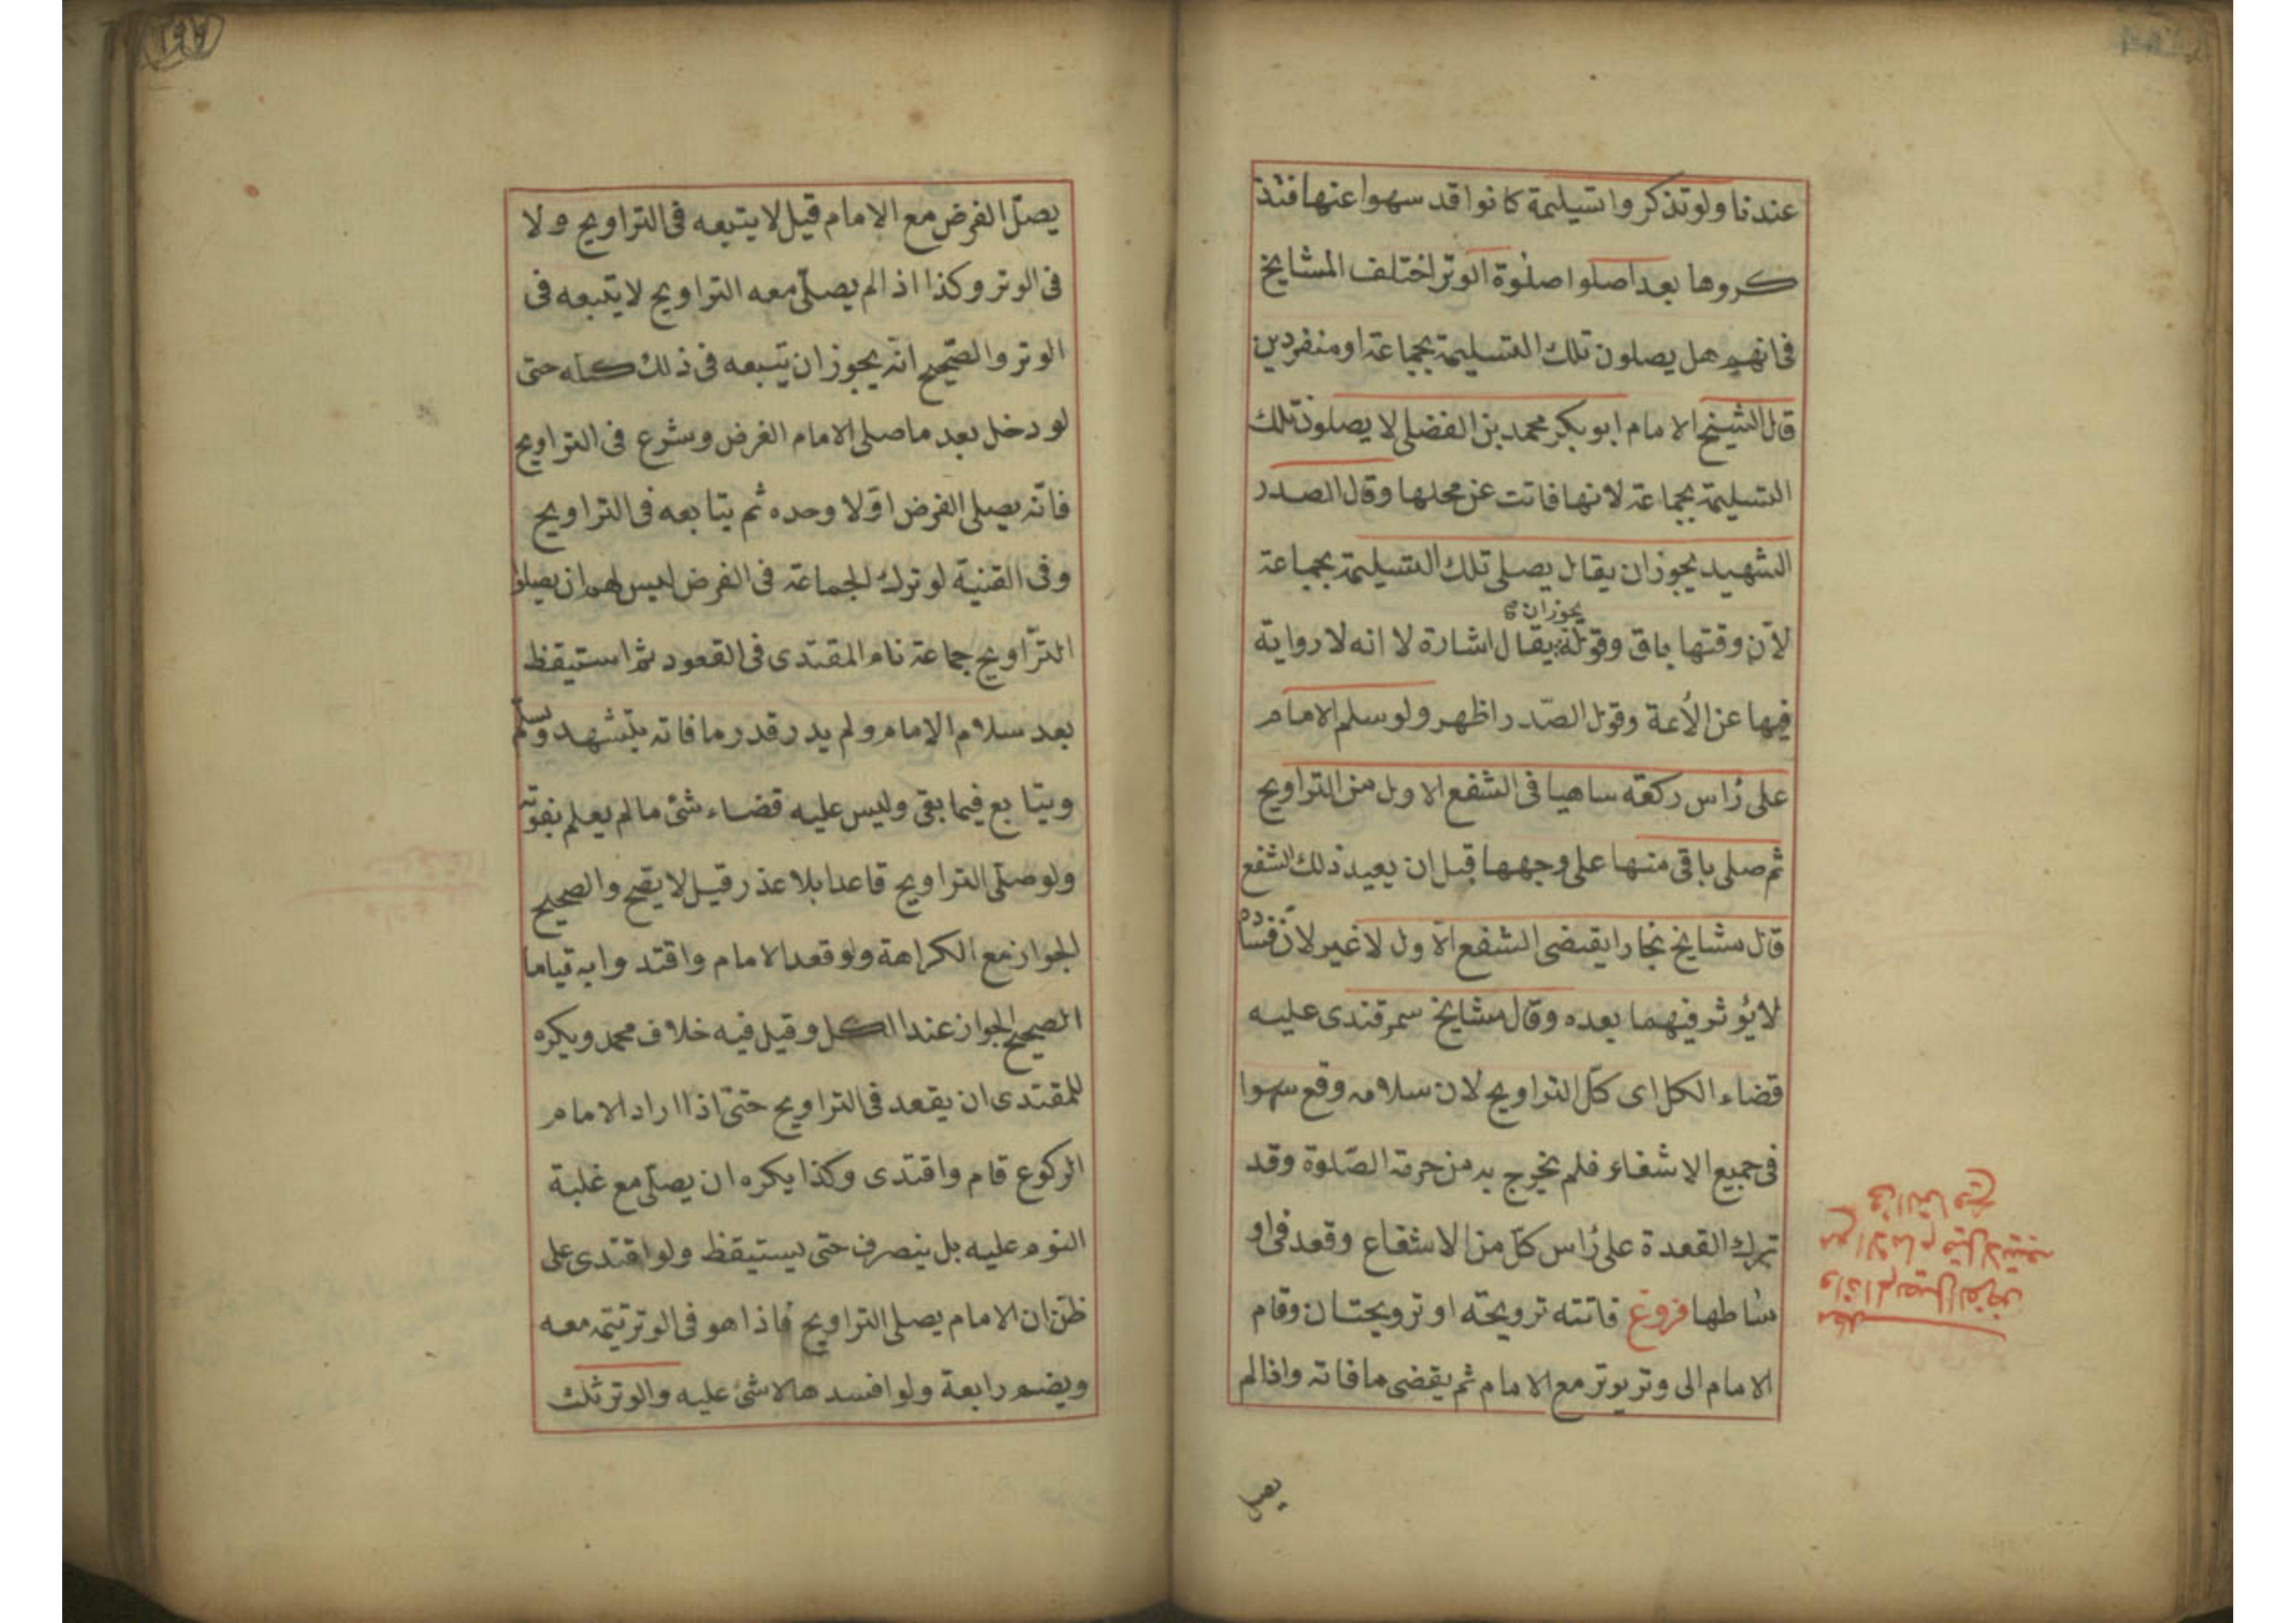 عندنا ولو تذكروا تسليمة كانوا قد سهوا عنها فتذ
كروها بعد اصلوا صلوة الوتر اختلف المشايخ
فى انهم هل يصلون تلك التسليمة بجماعة او منفردين
قال الشيخ الامام ابو بكر محمد بن الفضلى لا يصلون تلك
التسليمة بجماعة لانها فاتت عن محلها وقال الصدر
الشهيد يجوز ان يقال يصلى تلك التسليمة بجماعة
يجوز ان
لان وقتها باق وقوله يقال اشارة لا انه لا رواية
فيها عن الأئمة وقول الصّدر اظهر ولو سلم الامام
على رأس ركعة ساهيا فى الشفع الاول من التراويح
ثم صلى باقى منها على وجهها قبل ان يعيد ذلك الشفع
قال مشايخ بخارا يقضى الشفع الاول لا غير لان فساده
لا يؤثر فيهما بعده وقال مشايخ سمرقندى عليه
قضاء الكل اى كلّ التراويح لان سلامه وقع سهوا
فى جميع الاشفاع فلم يخرج به من حرمة الصّلوة وقد
ترك القعدة على رأس كلّ من الاشفاع وقعد فى او
ساطها فروع فاتته ترويحة او ترويحتان وقام
الامام الى وتر يوتر مع الامام ثم يقضى ما فاته واذا لم
مطلب
واذا لم يصل الفرض
مع الامام قيل لا يتبعه
فى التراويح
يصل
١٩٧
يصلّ الفرض مع الامام قيل لا يتبعه فى التراويح ولا
فى الوتر وكذا اذا لم يصلّى معه التراويح لا يتبعه فى
الوتر والصّحيح انّه يجوز ان يتبعه فى ذلك كله حتى
لو دخل بعد ما صلى الامام الفرض وشرع فى التراويح
فانّه يصلى الفرض اوّلا وحده ثم يتابعه فى التراويح
وفى القنية لو ترك الجماعة فى الفرض ليس لهم ان يصلوا
التّراويح جماعة نام المقتدى فى القعود ثم استيقظ
بعد سلام الامام ولم يدر قدر ما فاته يتشهد ويسلّم
ويتابع فيما بقى وليس عليه قضاء شئ ما لم يعلم بفوته
ولو صلّى التراويح قاعدا بلا عذر قيل لا يصح والصحيح
الجواز مع الكراهة ولو قعد الامام واقتدوا به قياما
الصحيح الجواز عند الكل وقيل فيه خلاف محمد ويكره
للمقتدى ان يقعد فى التراويح حتىّ اذا اراد الامام
الركوع قام واقتدى وكذا يكره ان يصلّى مع غلبة
النوم عليه بل ينصرف حتى يستيقظ ولو اقتدى على
ظنّ ان الامام يصلى التراويح فاذا هو فى الوتر تتمه معه
ويضم رابعة ولو افسدها لا شئ عليه والوتر ثلث